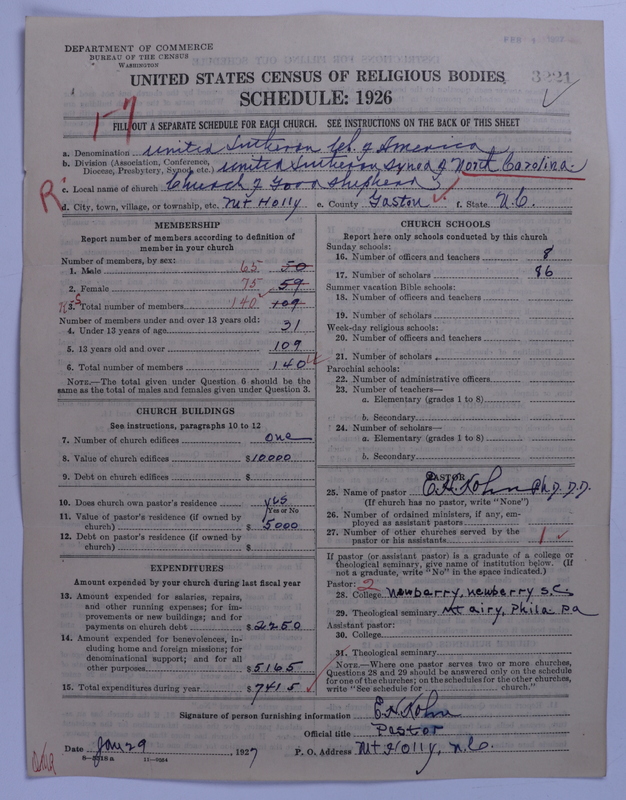 DEPARTMENT OF COMMERCE
BUREAU OF THE CENSUS
WASHINGTON
UNITED STATES CENSUS OF RELIGIOUS BODIES
3221
SCHEDULE: 1926
1-7
FILL OUT A SEPARATE SCHEDULE FOR EACH CHURCH. SEE INSTRUCTIONS ON THE BACK OF THIS SHEET
a. Denomination United Lutheran Ch. of America
b. Division (Association, Conference, Diocese, Presbytery, Synod, etc.) United Lutheran Synod of North Carolina
R c. Local name of church Church of Good Shepherd
d. City, town, village, or township, etc. Mt Holly e. County Gaston f. State N.C.
MEMBERSHIP
Report number of members according to definition of
member in your church
Number of members, by sex:
1. Male 65 50
2. Female 75 59
3. Total number of members 140 109
Number of members under and over 13 years old:
4. Under 13 years of age 31
5. 13 years old and over 109
6. Total number of members 140
NOTE.—The total given under Question 6 should be the
same as the total of males and females given under Question 3.
CHURCH BUILDINGS
See instructions, paragraphs 10 to 12
7. Number of church edifices one
8. Value of church edifices $ 10000
9. Debt on church edifices $
10. Does church own pastor's residence yes
Yes or No
11. Value of pastor's residence (if owned by
church) $ 5000
12. Debt on pastor's residence (if owned by
church) $
EXPENDITURES
Amount expended by your church during last fiscal year
13. Amount expended for salaries, repairs,
and other running expenses; for im-
provements or new buildings; and for
payments on church debt $ 2250
14. Amount expended for benevolences, in-
cluding home and foreign missions; for
denominational support; and for all
other purposes $ 5165
15. Total expenditures during year $ 7415
CHURCH SCHOOLS
Report here only schools conducted by this church
Sunday schools:
16. Number of officers and teachers 8
17. Number of scholars 86
Summer vacation Bible schools:
18. Number of officers and teachers
19. Number of scholars
Week-day religious schools:
20. Number of officers and teachers
21. Number of scholars
Parochial schools:
22. Number of administrative officers
23. Number of teachers—
a. Elementary (grades 1 to 8)
b. Secondary
24. Number of scholars—
a. Elementary (grades 1 to 8)
b. Secondary
PASTOR
25. Name of pastor E. H. Kohn Ph.D. D.D.
(If church has no pastor, write "None")
26. Number of ordained ministers, if any, em-
ployed as assistant pastors
27. Number of other churches served by the
pastor or his assistants 1
If pastor (or assistant pastor) is a graduate of a college or
theological seminary, give name of institution below. (If
not a graduate, write "No" in the space indicated.)
Pastor: 2
28. College Newbarry, Newberry S.C.
29. Theological seminary Mt airy, Phila. Pa
Assistant pastor:
30. College
31. Theological seminary
NOTE.—Where one pastor serves two or more churches,
Questions 28 and 29 should be answered only on the schedule
for one of the churches; on the schedules for the other churches,
write "See schedule for church."
Signature of person furnishing information E H Kohn
Official title Pastor
Date Jan 29, 1927 P. O. Address Mt Holly, N.C.
8—5318a 11—9064